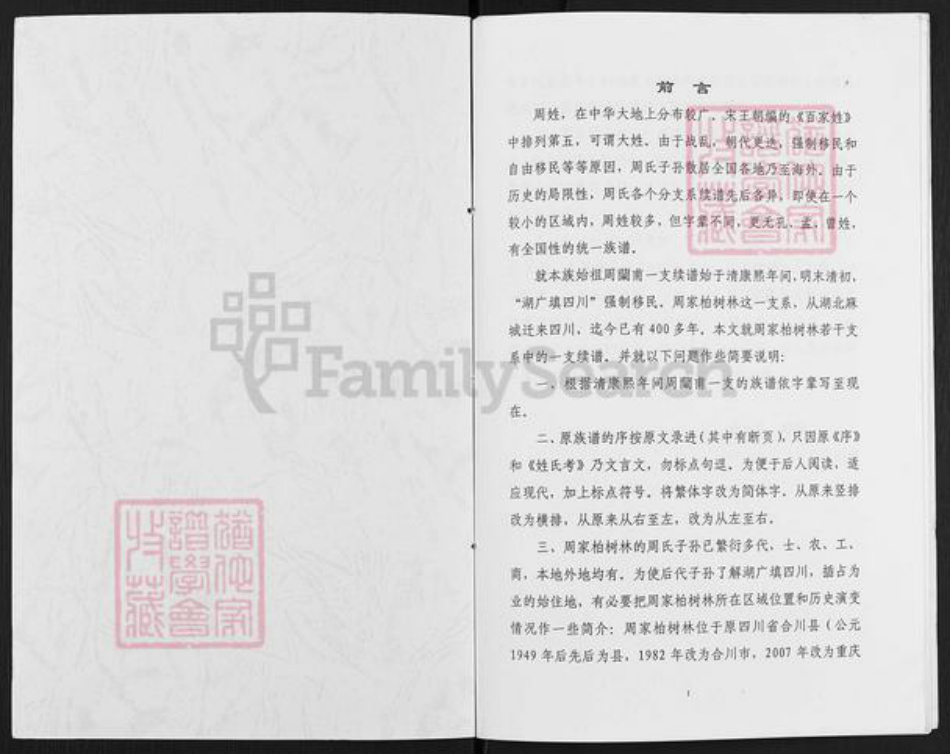 前 言
周姓，在中华大地上分布较广。宋王朝编的《百家姓》
中排列第五，可谓大姓。由于战乱，朝代更迭，强制移民和
自由移民等等原因，周氏子孙散居全国各地乃至海外。由于
历史的局限性，周氏各个分支系续谱先后各异，即使在一个
较小的区域内，周姓较多，但字辈不同，更无孔、孟、曾姓，
有全国性的统一族谱。
就本族始祖周蘭甫一支续谱始于清康熙年间，明末清初，
“湖广填四川”强制移民。周家柏树林这一支系，从湖北麻
城迁来四川，迄今已有 400 多年。本文就周家柏树林若干支
系中的一支续谱。并就以下问题作些简要说明：
一、根据清康熙年间周蘭甫一支的族谱依字辈写至现
在。
二、原族谱的序按原文录进（其中有断页），只因原《序》
和《姓氏考》乃文言文，勿标点句逗。为便于后人阅读，适
应现代，加上标点符号。将繁体字改为简体字。从原来竖排
改为横排，从原来从右至左，改为从左至右。
三、周家柏树林的周氏子孙已繁衍多代、士、农、工、
商，本地外地均有。为使后代子孙了解湖广填四川，插占为
业的始住地，有必要把周家柏树林所在区域位置和历史演变
情况作一些简介：周家柏树林位于原四川省合川县（公元
1949 年后先后为县，1982 年改为合川市，2007 年改为重庆
1
FamilySearch